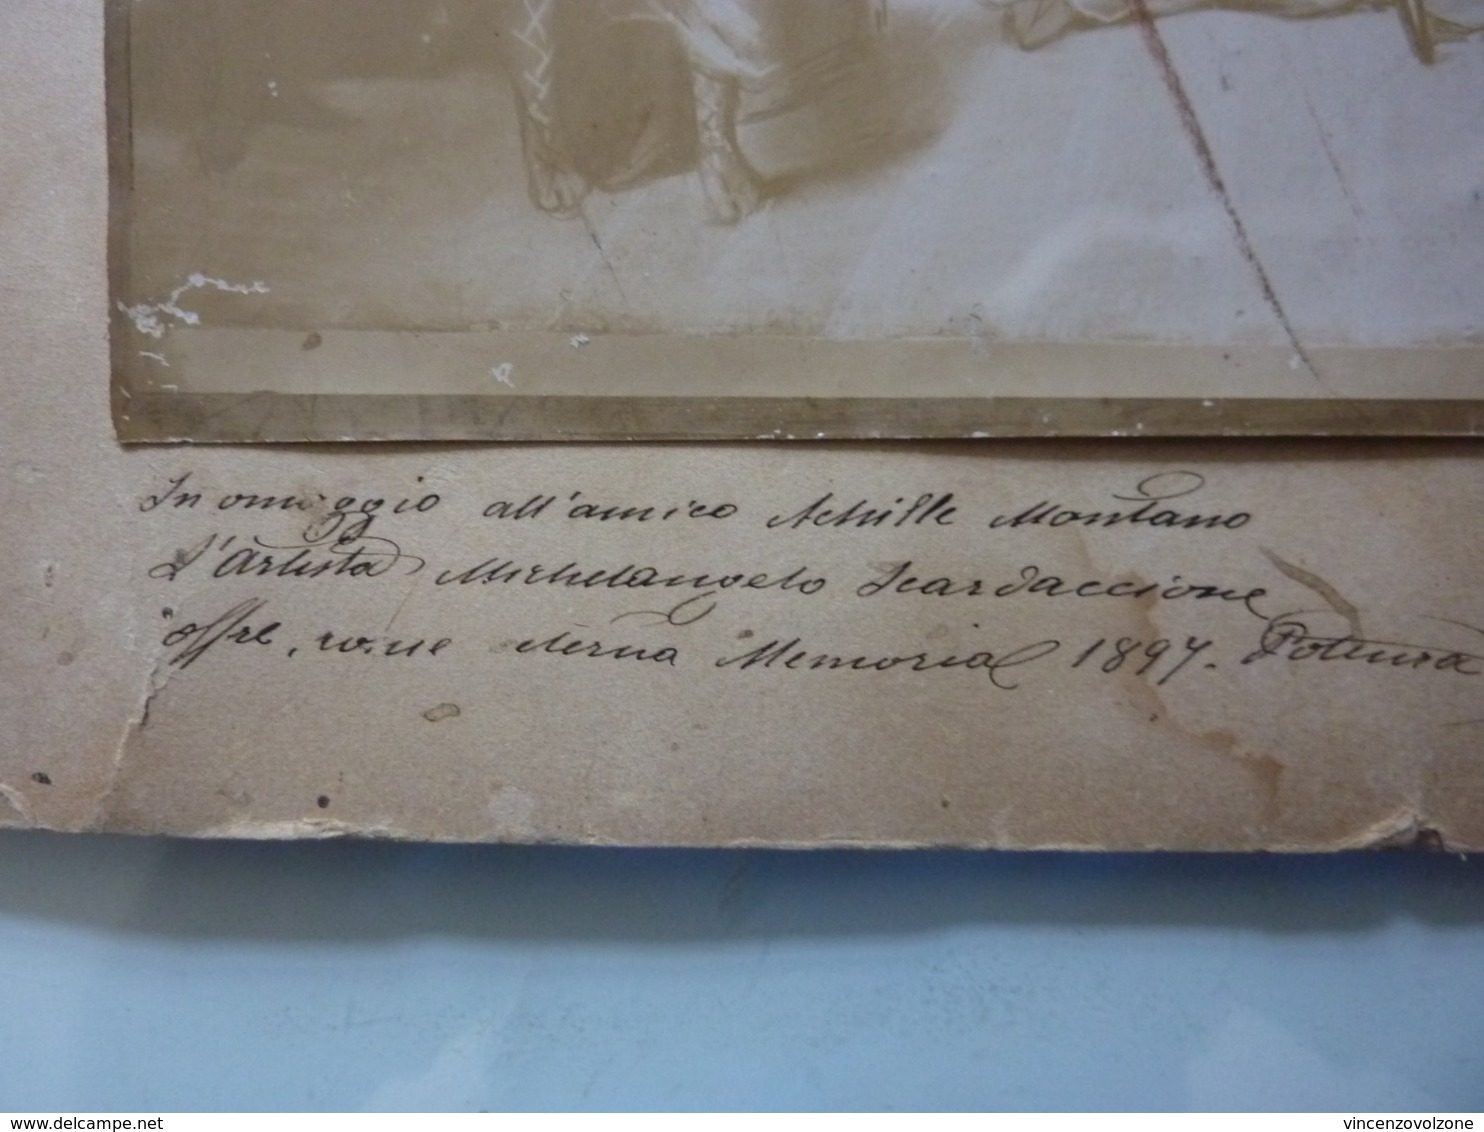 In omaggio all'amico Achille Montano
L'Artista Michelangelo Scardaccione
offre, come eterna Memoria 1897. Potenza
delcampe.net
vincenzovolzone